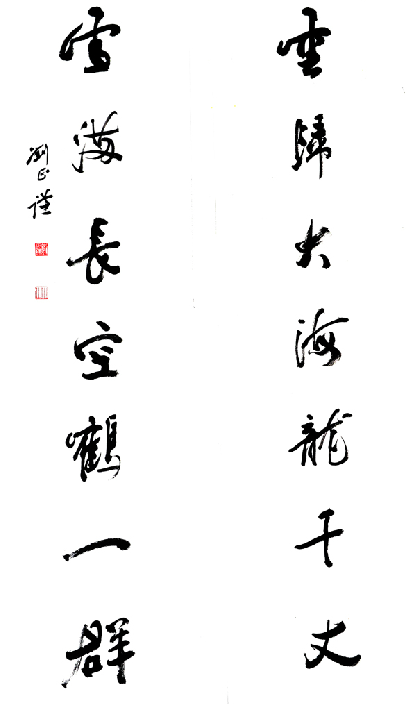 雲歸大海龍千丈
雪滿長空鶴一群
劉正謹